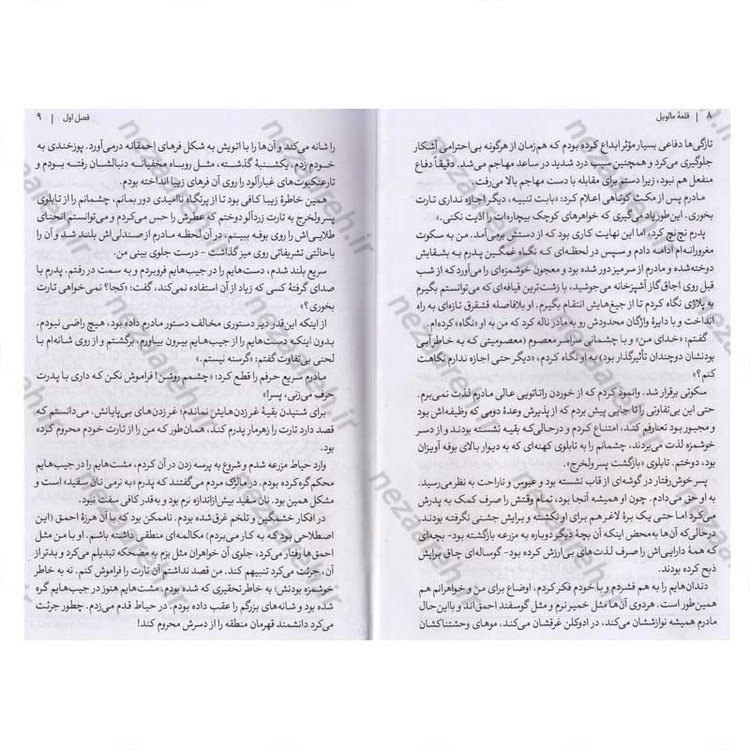 ۸ | قلعهٔ مالویل
تازگی‌ها دفاعی بسیار مؤثر ابداع کرده بودم که هم‌زمان از هرگونه بی‌احترامی آشکار
جلوگیری می‌کرد و همچنین سبب درد شدید در ساعد مهاجم می‌شد. دقیقاً دفاع
منفعل هم نبود، زیرا دستم برای مقابله با دست مهاجم بالا می‌رفت.
مادرم پس از مکث کوتاهی اعلام کرد: «بابت تنبیه، دیگر اجازه نداری تارت
بخوری. این‌طور یاد می‌گیری که خواهرهای کوچک بیچاره‌ات را اذیت نکنی.»
پدرم نچ‌نچ کرد، اما این نهایت کاری بود که از دستش برمی‌آمد. من به سکوت
مغرورانه‌ام ادامه دادم و سپس در لحظه‌ای که نگاه غمگین پدرم به بشقابش
دوخته‌شده و مادرم از سر میز دور شده بود و معجون خوشمزه‌ای را می‌آورد که از شب
قبل روی اجاق‌گاز آشپزخانه می‌جوشید، با زشت‌ترین قیافه‌ای که می‌توانستم بگیرم
به پلاژی نگاه کردم تا از جیغ‌هایش انتقام بگیرم. او بلافاصله قشقرق تازه‌ای به راه
انداخت و با دایرهٔ واژگان محدودش رو به مادر ناله کرد که من به او «نگاه» کرده‌ام.
گفتم: «خدای من» و با چشمانی سراسر معصوم (معصومیتی که به خاطر آبی
بودنشان دوچندان تأثیرگذار بود) به او نگاه کردم، «دیگر حتی اجازه ندارم نگاهت
کنم؟»
سکوتی برقرار شد. وانمود کردم که از خوردن راتاتویی عالی مادرم لذت نمی‌برم.
حتی این بی‌تفاوتی را تا جایی پیش بردم که از پذیرش وعدهٔ دومی که وظیفه‌اش بود
و مجبور بود تعارفم کند، امتناع کردم و درحالی‌که بقیه نشسته بودند و از دسر
خوشمزه لذت می‌بردند، چشمانم را به تابلوی کهنه‌ای که به دیوار بالای بوفه آویزان
بود، دوختم. تابلوی «بازگشت پسر ولخرج».
پسر خوش‌رفتار در گوشه‌ای از قاب نشسته بود و عبوس و ناراحت به نظر می‌رسید.
به او حق می‌دادم. چون او همیشه آنجا بود، تمام وقتش را صرف کمک به پدرش
می‌کرد اما حتی یک برهٔ لاغر هم برای او نکشته و برایش جشنی نگرفته بودند،
درحالی‌که آن‌ها به‌محض اینکه آن بچهٔ دیگر دوباره به مزرعه بازگشته بود- بچه‌ای
که همهٔ دارایی‌اش را صرف لذت‌های بی‌ارزش کرده بود- گوساله‌ای چاق برایش
ذبح کرده بودند.
دندان‌هایم را به هم فشردم و با خودم فکر کردم، اوضاع برای من و خواهرانم هم
همین‌طور است. هردوی آن‌ها مثل خمیر نرم و مثل گوسفند احمق‌اند و بااین‌حال
مادرم همیشه نوازششان می‌کند، در ادوکلن غرقشان می‌کند، موهای وحشتناکشان
فصل اول | ۹
را شانه می‌کند و آن‌ها را با اتویش به شکل فرهای احمقانه درمی‌آورد. پوزخندی به
خودم زدم. یکشنبهٔ گذشته، مثل روباه مخفیانه دنبالشان رفته بودم و
تارعنکبوت‌های غبارآلود را روی آن فرهای زیبا انداخته بودم.
همین خاطرهٔ زیبا کافی بود تا از پرتگاه ناامیدی دور بمانم، چشمانم را از تابلوی
پسر ولخرج به تارت زردآلو دوختم که عطرش را حس می‌کردم و می‌توانستم انحنای
طلایی‌اش را روی بوفه ببینم، در آن لحظه مادرم از صندلی‌اش بلند شد و آن را
باحالتی تشریفاتی روی میز گذاشت - درست جلوی بینی من.
سریع بلند شدم، دست‌هایم را در جیب‌هایم فروبردم و به سمت در رفتم. پدرم با
صدای گرفتهٔ کسی که زیاد از آن استفاده نمی‌کند، گفت: «کجا؟ نمی‌خواهی تارت
بخوری؟»
از اینکه این‌قدر دیر دستوری مخالف دستور مادرم داده بود، هیچ راضی نبودم.
بدون اینکه دست‌هایم را از جیب‌هایم بیرون بیاورم، برگشتم و از روی شانه‌ام با
لحنی بی‌تفاوت گفتم: «گرسنه نیستم.»
مادرم سریع حرفم را قطع کرد: «چشمم روشن! فراموش نکن که داری با پدرت
حرف می‌زنی، پسر!»
برای شنیدن بقیهٔ غرزدن‌هایش نماندم؛ غرزدن‌های بی‌پایانش. می‌دانستم که
قصد دارد تارت را زهرمار پدرم کند، همان‌طور که من را از تارت خودم محروم کرده
بود.
وارد حیاط مزرعه شدم و شروع به پرسه زدن در آن کردم، مشت‌هایم را در جیب‌هایم
محکم گره کرده بودم. در مالژک مردم می‌گفتند که پدرم «به نرمی نان سفید» است و
مشکل همین بود. نان سفید بیش‌ازاندازه نرم بود و به‌قدر کافی سفت نبود.
در افکار خشمگین و تلخم غرق شده بودم. ناممکن بود که با آن هرزهٔ احمق (این
اصطلاحی بود که به کار می‌بردم) مکالمه‌ای منطقی داشته باشم. او با من مثل
احمق‌ها رفتار می‌کرد، جلوی آن خواهران مثل بزم به مضحکه تبدیلم می‌کرد و بدتر از
آن، جرئت می‌کرد تنبیهم کند. من قصد نداشتم آن تارت را فراموش کنم. نه به خاطر
خوشمزه بودنش؛ به خاطر تحقیری که شده بودم. مشت‌هایم هنوز در جیب‌هایم گره
شده بود و شانه‌های بزرگم را عقب داده بودم. در حیاط قدم می‌زدم. چطور جرئت
می‌کرد دانشمند قهرمان منطقه را از دسرش محروم کند!
nezaareh.ir